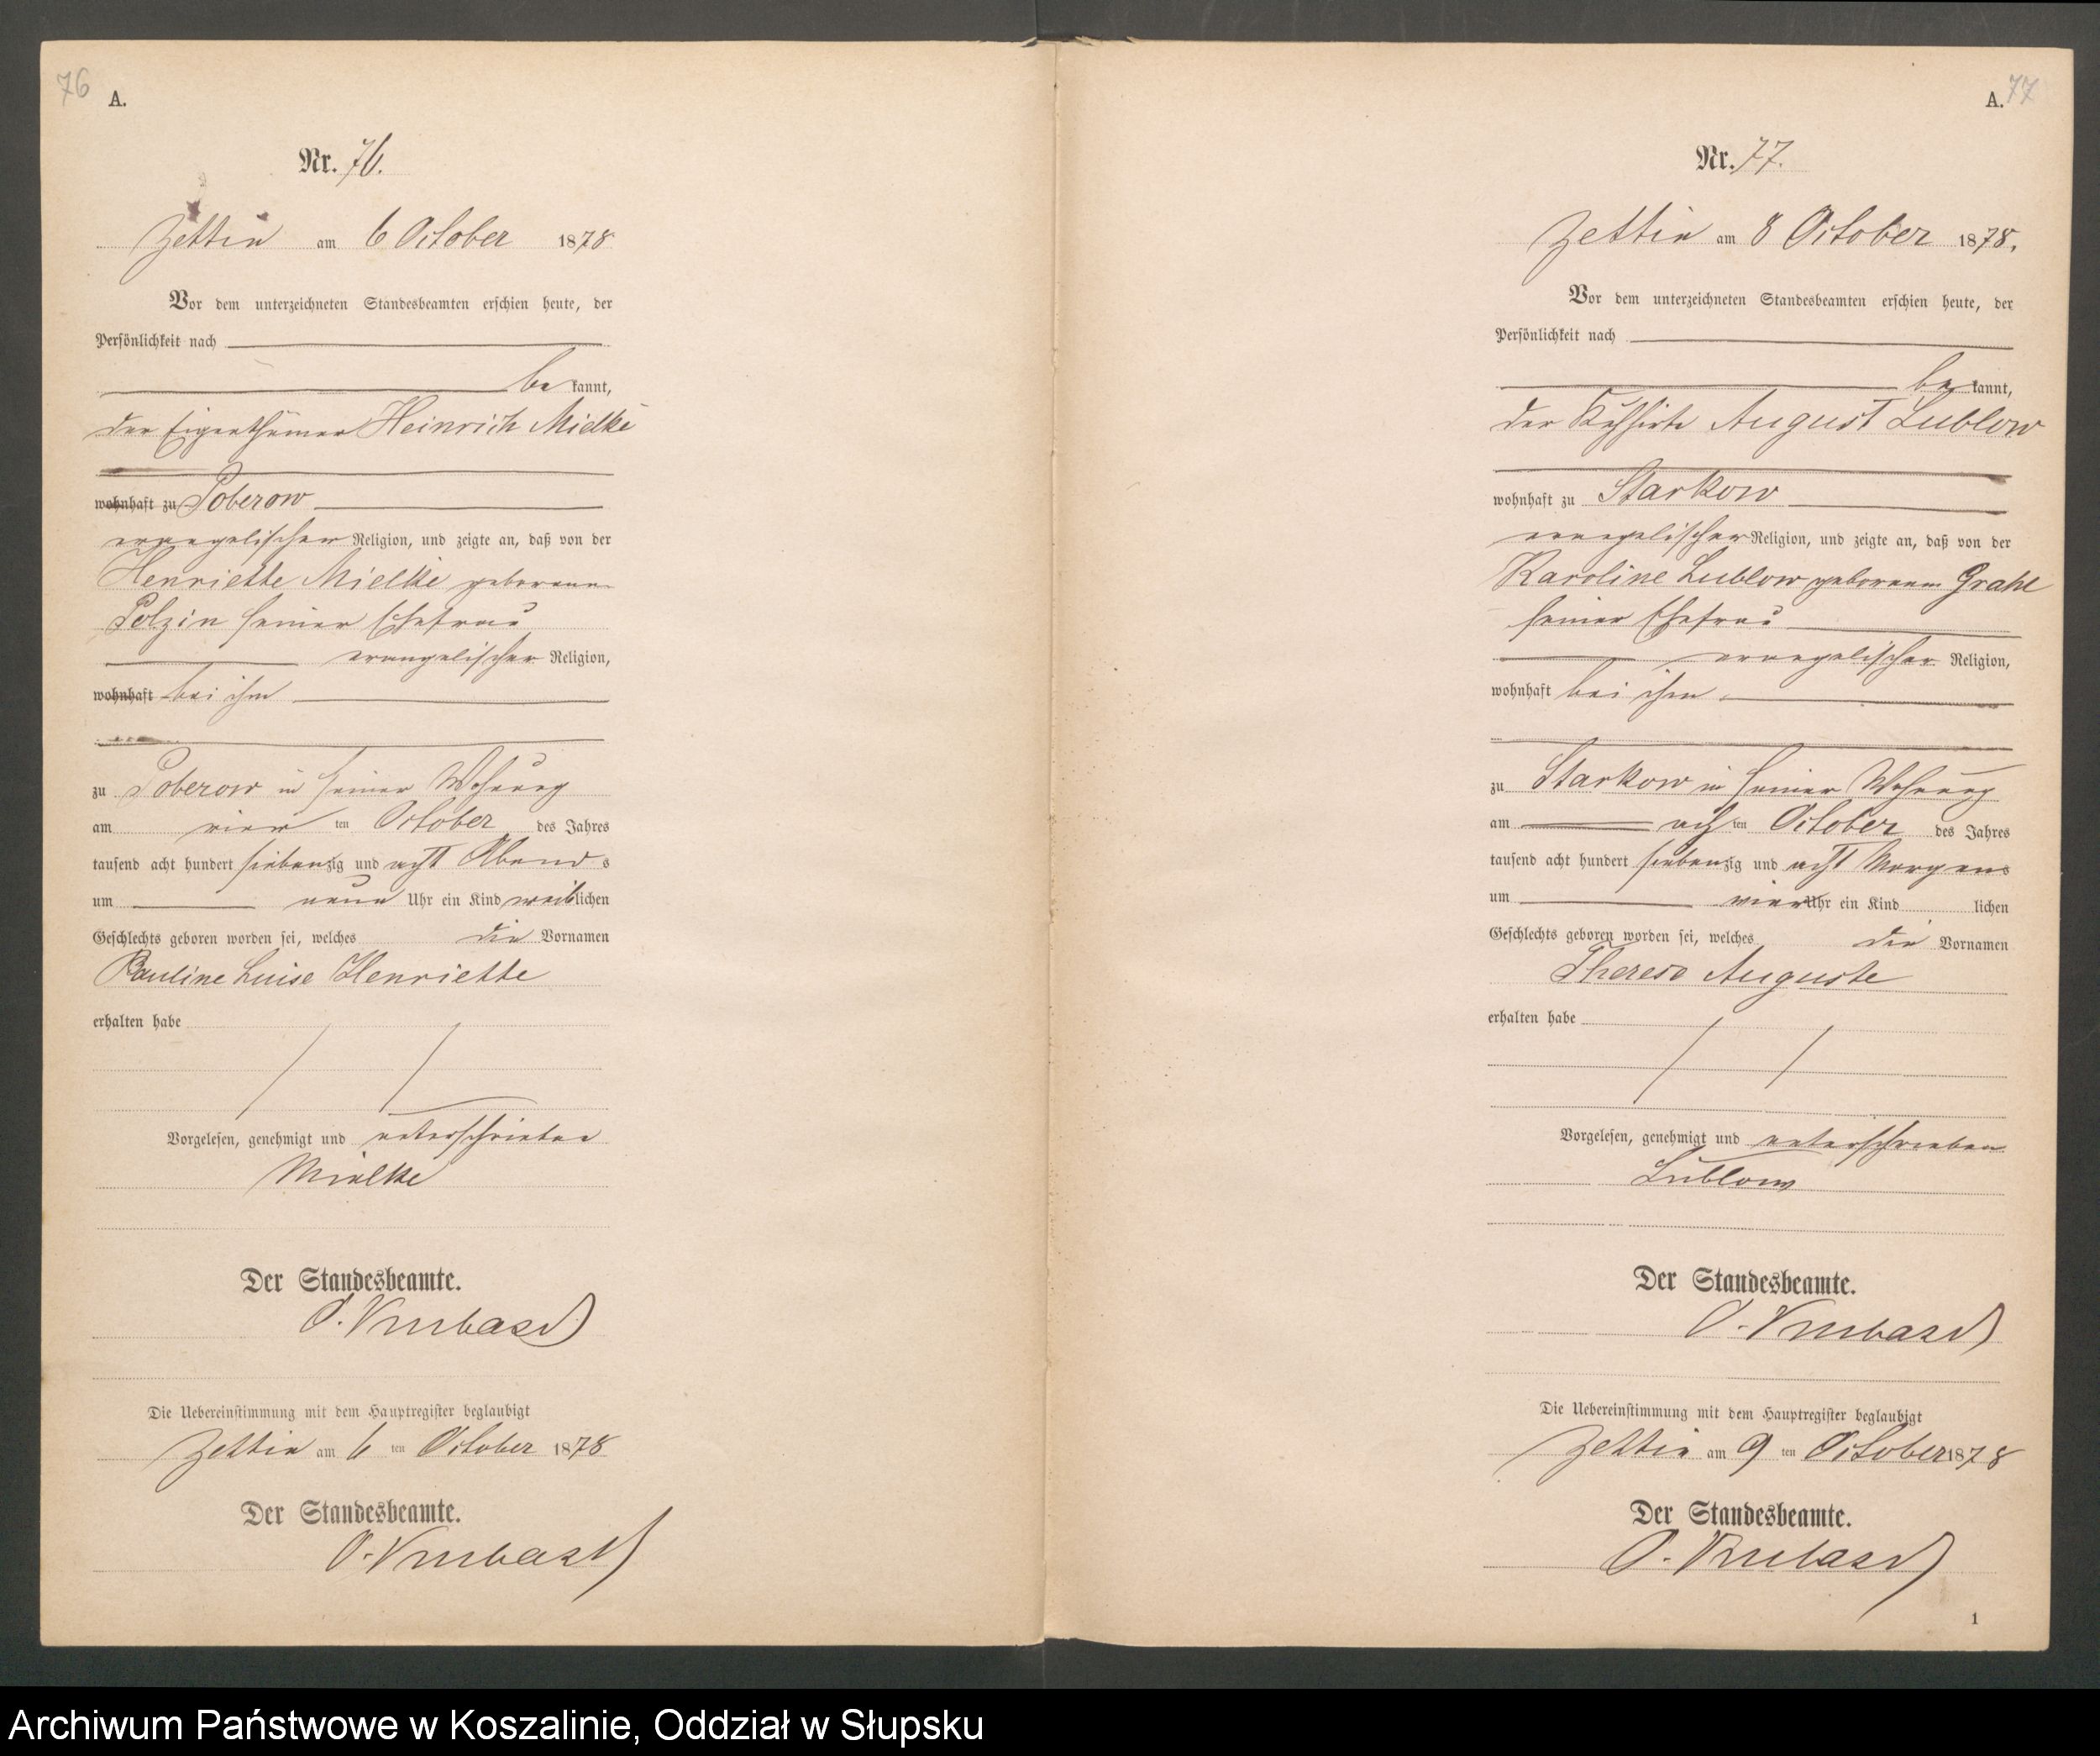 76
A.
Nr. 76.
Zettin am 6 October 1878
Vor dem unterzeichneten Standesbeamten erschien heute, der
Persönlichkeit nach
be kannt,
der Eigenthümer Heinrich Mielke
wohnhaft zu Poberow
evangelischer Religion, und zeigte an, daß von der
Henriette Mielke geborenen
Polzin seiner Ehefrau
evangelischer Religion,
wohnhaft bei ihm
zu Poberow in seiner Wohnung
am vier ten October des Jahres
tausend acht hundert siebenzig und acht Abend s
um neun Uhr ein Kind weiblichen
Geschlechts geboren worden sei, welches die Vornamen
Pauline Luise Henriette
erhalten habe
Vorgelesen, genehmigt und unterschrieben
Mielke
Der Standesbeamte.
Die Uebereinstimmung mit dem Hauptregister beglaubigt
Zettin am 6 ten October 1878
Der Standesbeamte.
77
A.
Nr. 77.
Zettin am 8 October 1878.
Vor dem unterzeichneten Standesbeamten erschien heute, der
Persönlichkeit nach
be kannt,
der Kuhhirte August Lublow
wohnhaft zu Starkow
evangelischer Religion, und zeigte an, daß von der
Karoline Lublow geborenen Grahl
seiner Ehefrau
evangelischer Religion,
wohnhaft bei ihm
zu Starkow in seiner Wohnung
am ach ten October des Jahres
tausend acht hundert siebenzig und acht Morgens
um vier Uhr ein Kind lichen
Geschlechts geboren worden sei, welches die Vornamen
Therese Auguste
erhalten habe
Vorgelesen, genehmigt und unterschrieben
Lublow
Der Standesbeamte.
Die Uebereinstimmung mit dem Hauptregister beglaubigt
Zettin am 9 ten October 1878
Der Standesbeamte.
1
Archiwum Państwowe w Koszalinie, Oddział w Słupsku